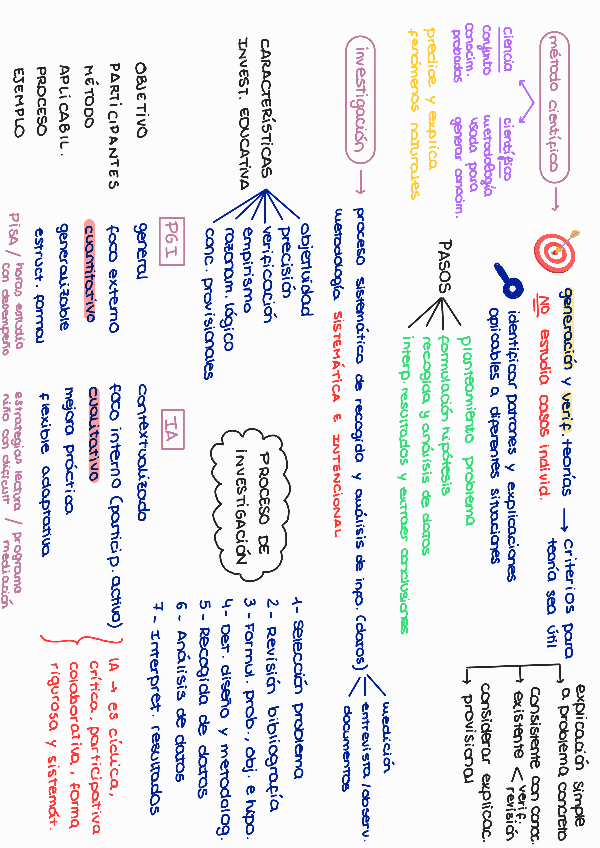 método científico →
ciencia
conjunto
conocim.
probados
científico
metodología
usada para
generar conocim.
predice y explica
fenómenos naturales
generación y verif. teorías → criterios para
teoría sea útil
NO estudia casos individ.
identificar patrones y explicaciones
aplicables a diferentes situaciones
explicación simple
a problema concreto
consistente con conoc.
existente < verif.
revisión
considerar explicac.
provisional
PASOS
planteamiento problema
formulación hipótesis
recogida y análisis de datos
interp. resultados y extraer conclusiones
investigación →
proceso sistemático de recogida y análisis de info. (datos)
metodología SISTEMÁTICA E INTENCIONAL
medición
entrevista/observ.
documentos
CARACTERÍSTICAS
INVEST. EDUCATIVA
objetividad
precisión
verificación
empirismo
razonam. lógico
conc. provisionales
PROCESO DE
INVESTIGACIÓN
1- Selección problema
2- Revisión bibliografía
3- Formul. prob., obj. e hipo.
4- Det. diseño y metodolog.
5- Recogida de datos
6- Análisis de datos
7- Interpret. resultados
PGI
IA
OBJETIVO
general
contextualizado
PARTICIPANTES
foco externo
foco interno (particip. activa)
MÉTODO
cuantitativo
cualitativo
APLICABIL.
generalizable
mejora práctica
PROCESO
estruct. formal
flexible adaptativa
EJEMPLO
PISA / horas estudio
con desempeño
estrategias lectura / programa
niño con dificult. mediación
IA → es cíclica,
crítica, participativa
colaborativa, forma
rigurosa y sistemát.